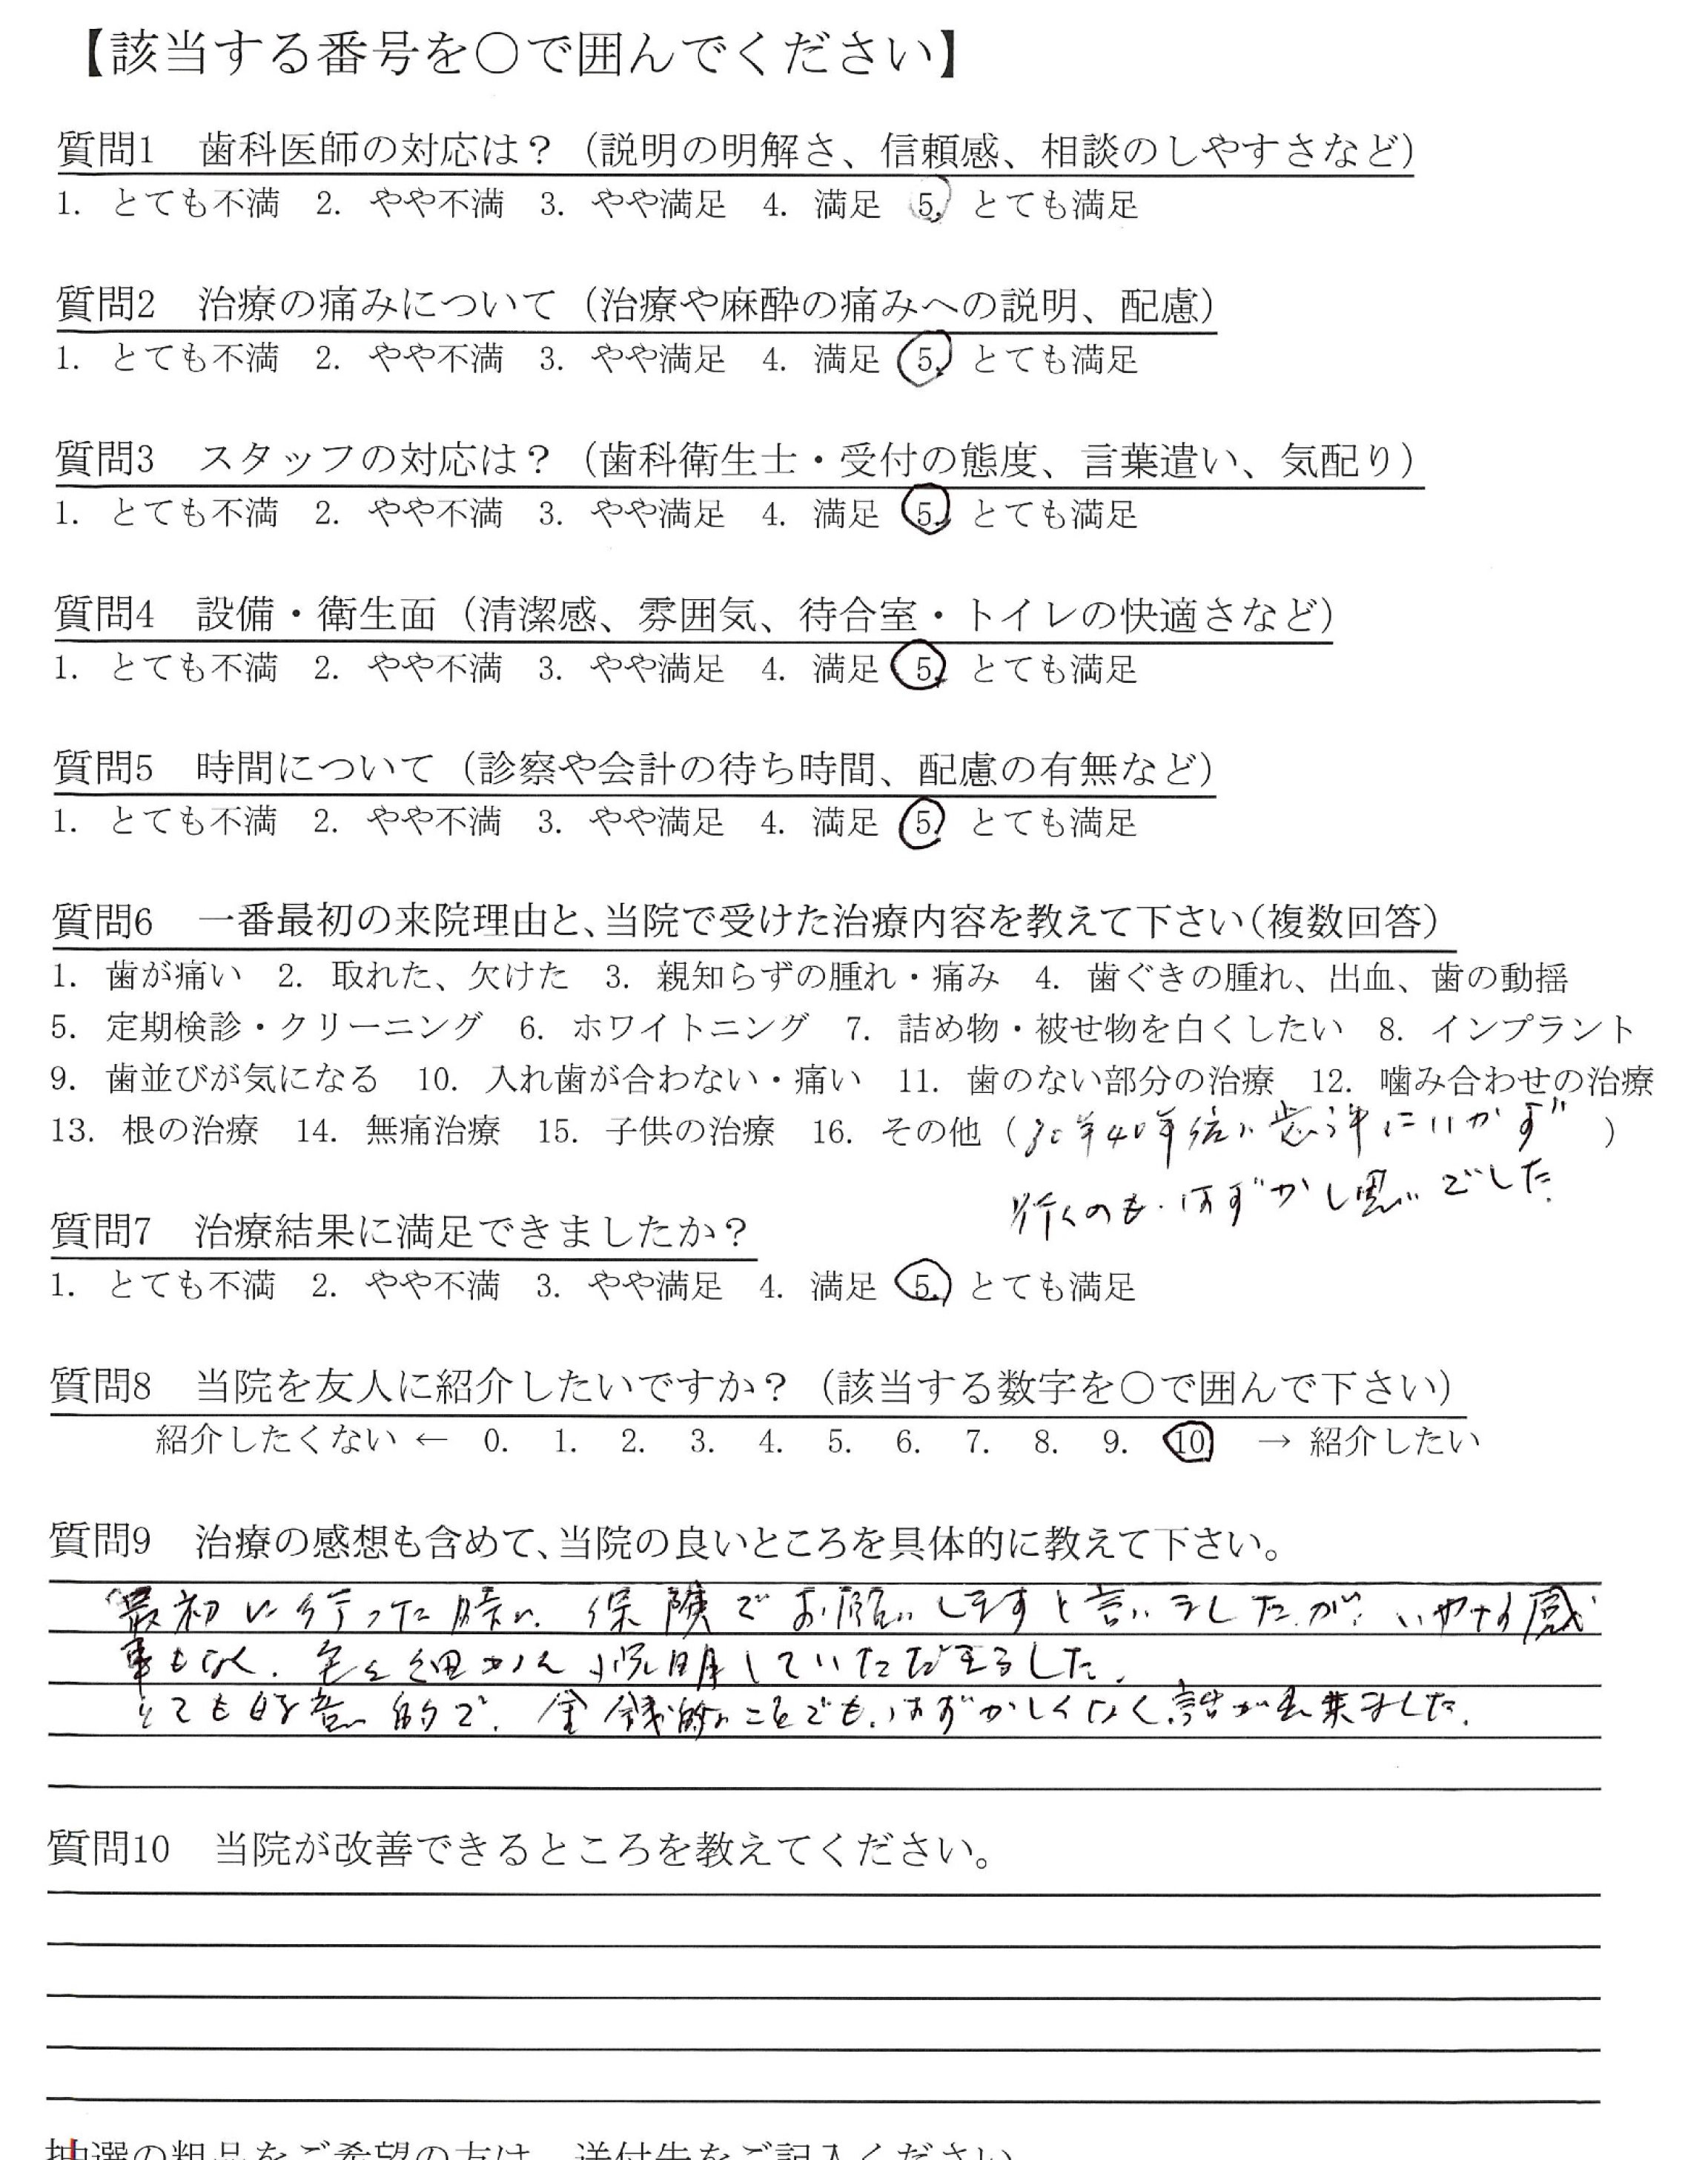 【該当する番号を○で囲んでください】
質問1　歯科医師の対応は？（説明の明解さ、信頼感、相談のしやすさなど）
1. とても不満　2. やや不満　3. やや満足　4. 満足　5. とても満足
質問2　治療の痛みについて（治療や麻酔の痛みへの説明、配慮）
1. とても不満　2. やや不満　3. やや満足　4. 満足　5. とても満足
質問3　スタッフの対応は？（歯科衛生士・受付の態度、言葉遣い、気配り）
1. とても不満　2. やや不満　3. やや満足　4. 満足　5. とても満足
質問4　設備・衛生面（清潔感、雰囲気、待合室・トイレの快適さなど）
1. とても不満　2. やや不満　3. やや満足　4. 満足　5. とても満足
質問5　時間について（診察や会計の待ち時間、配慮の有無など）
1. とても不満　2. やや不満　3. やや満足　4. 満足　5. とても満足
質問6　一番最初の来院理由と、当院で受けた治療内容を教えて下さい（複数回答）
1. 歯が痛い　2. 取れた、欠けた　3. 親知らずの腫れ・痛み　4. 歯ぐきの腫れ、出血、歯の動揺
5. 定期検診・クリーニング　6. ホワイトニング　7. 詰め物・被せ物を白くしたい　8. インプラント
9. 歯並びが気になる　10. 入れ歯が合わない・痛い　11. 歯のない部分の治療　12. 噛み合わせの治療
13. 根の治療　14. 無痛治療　15. 子供の治療　16. その他（30年40年 にいかず）
行くのも、はずかし思いでした
質問7　治療結果に満足できましたか？
1. とても不満　2. やや不満　3. やや満足　4. 満足　5. とても満足
質問8　当院を友人に紹介したいですか？（該当する数字を○で囲んで下さい）
紹介したくない ← 0. 1. 2. 3. 4. 5. 6. 7. 8. 9. 10 → 紹介したい
質問9　治療の感想も含めて、当院の良いところを具体的に教えて下さい。
最初に行った時に、保険でお願いしますと言いましたが、いやな感
事もなく、 細かく説明していただきました。
とても好意的で、金銭的なことでも、はずかしくなく話が出来ました。
質問10　当院が改善できるところを教えてください。
抽選の粗品をご希望の方は、送付先をご記入ください